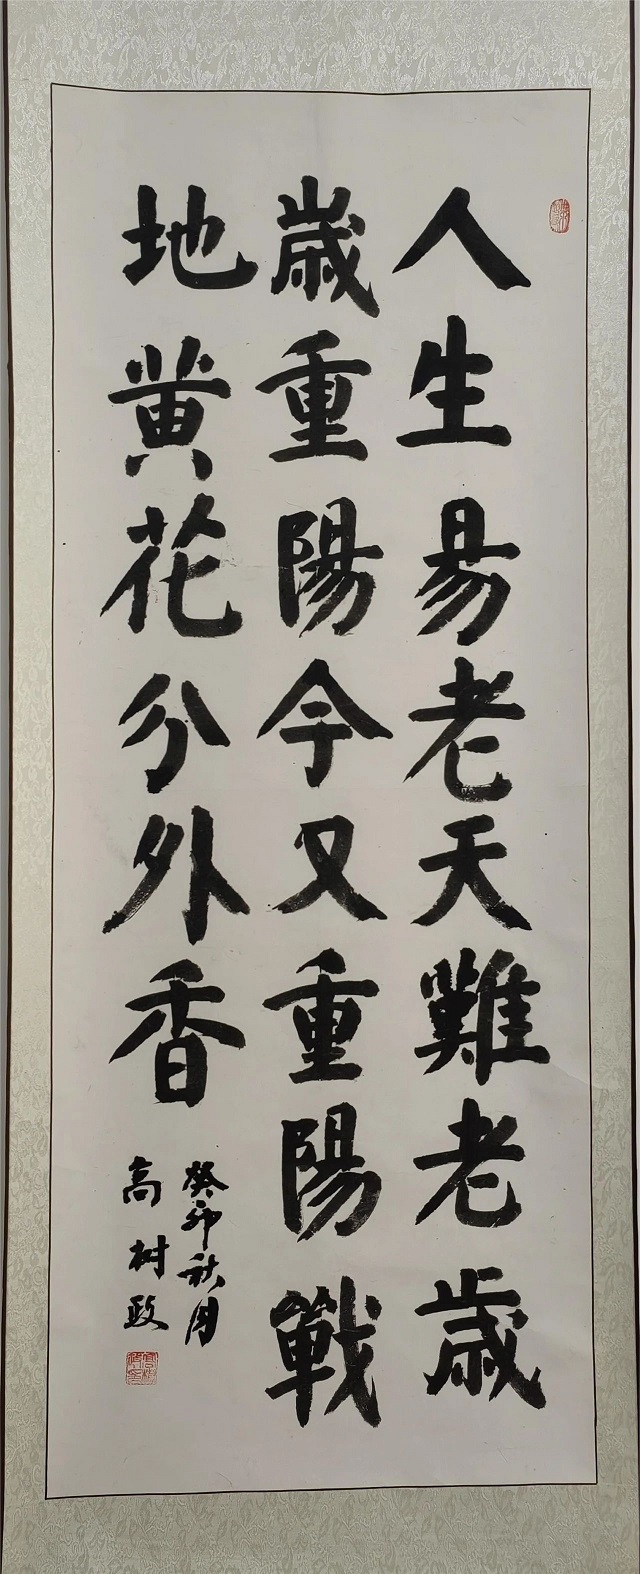 人生易老天難老歲
歲重陽今又重陽戰
地黄花分外香
癸卯秋月
高树政